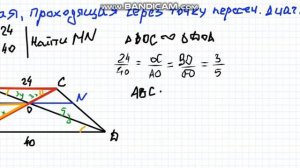 WWW.BANDICAM.COM
ая, проходящая через точку пересеч. диаг.
24
40
Найти MN
△BOC ∞ △DOA
24/40 = OC/AO = BO/OD = 3/5
ABC
24
C
O
N
40